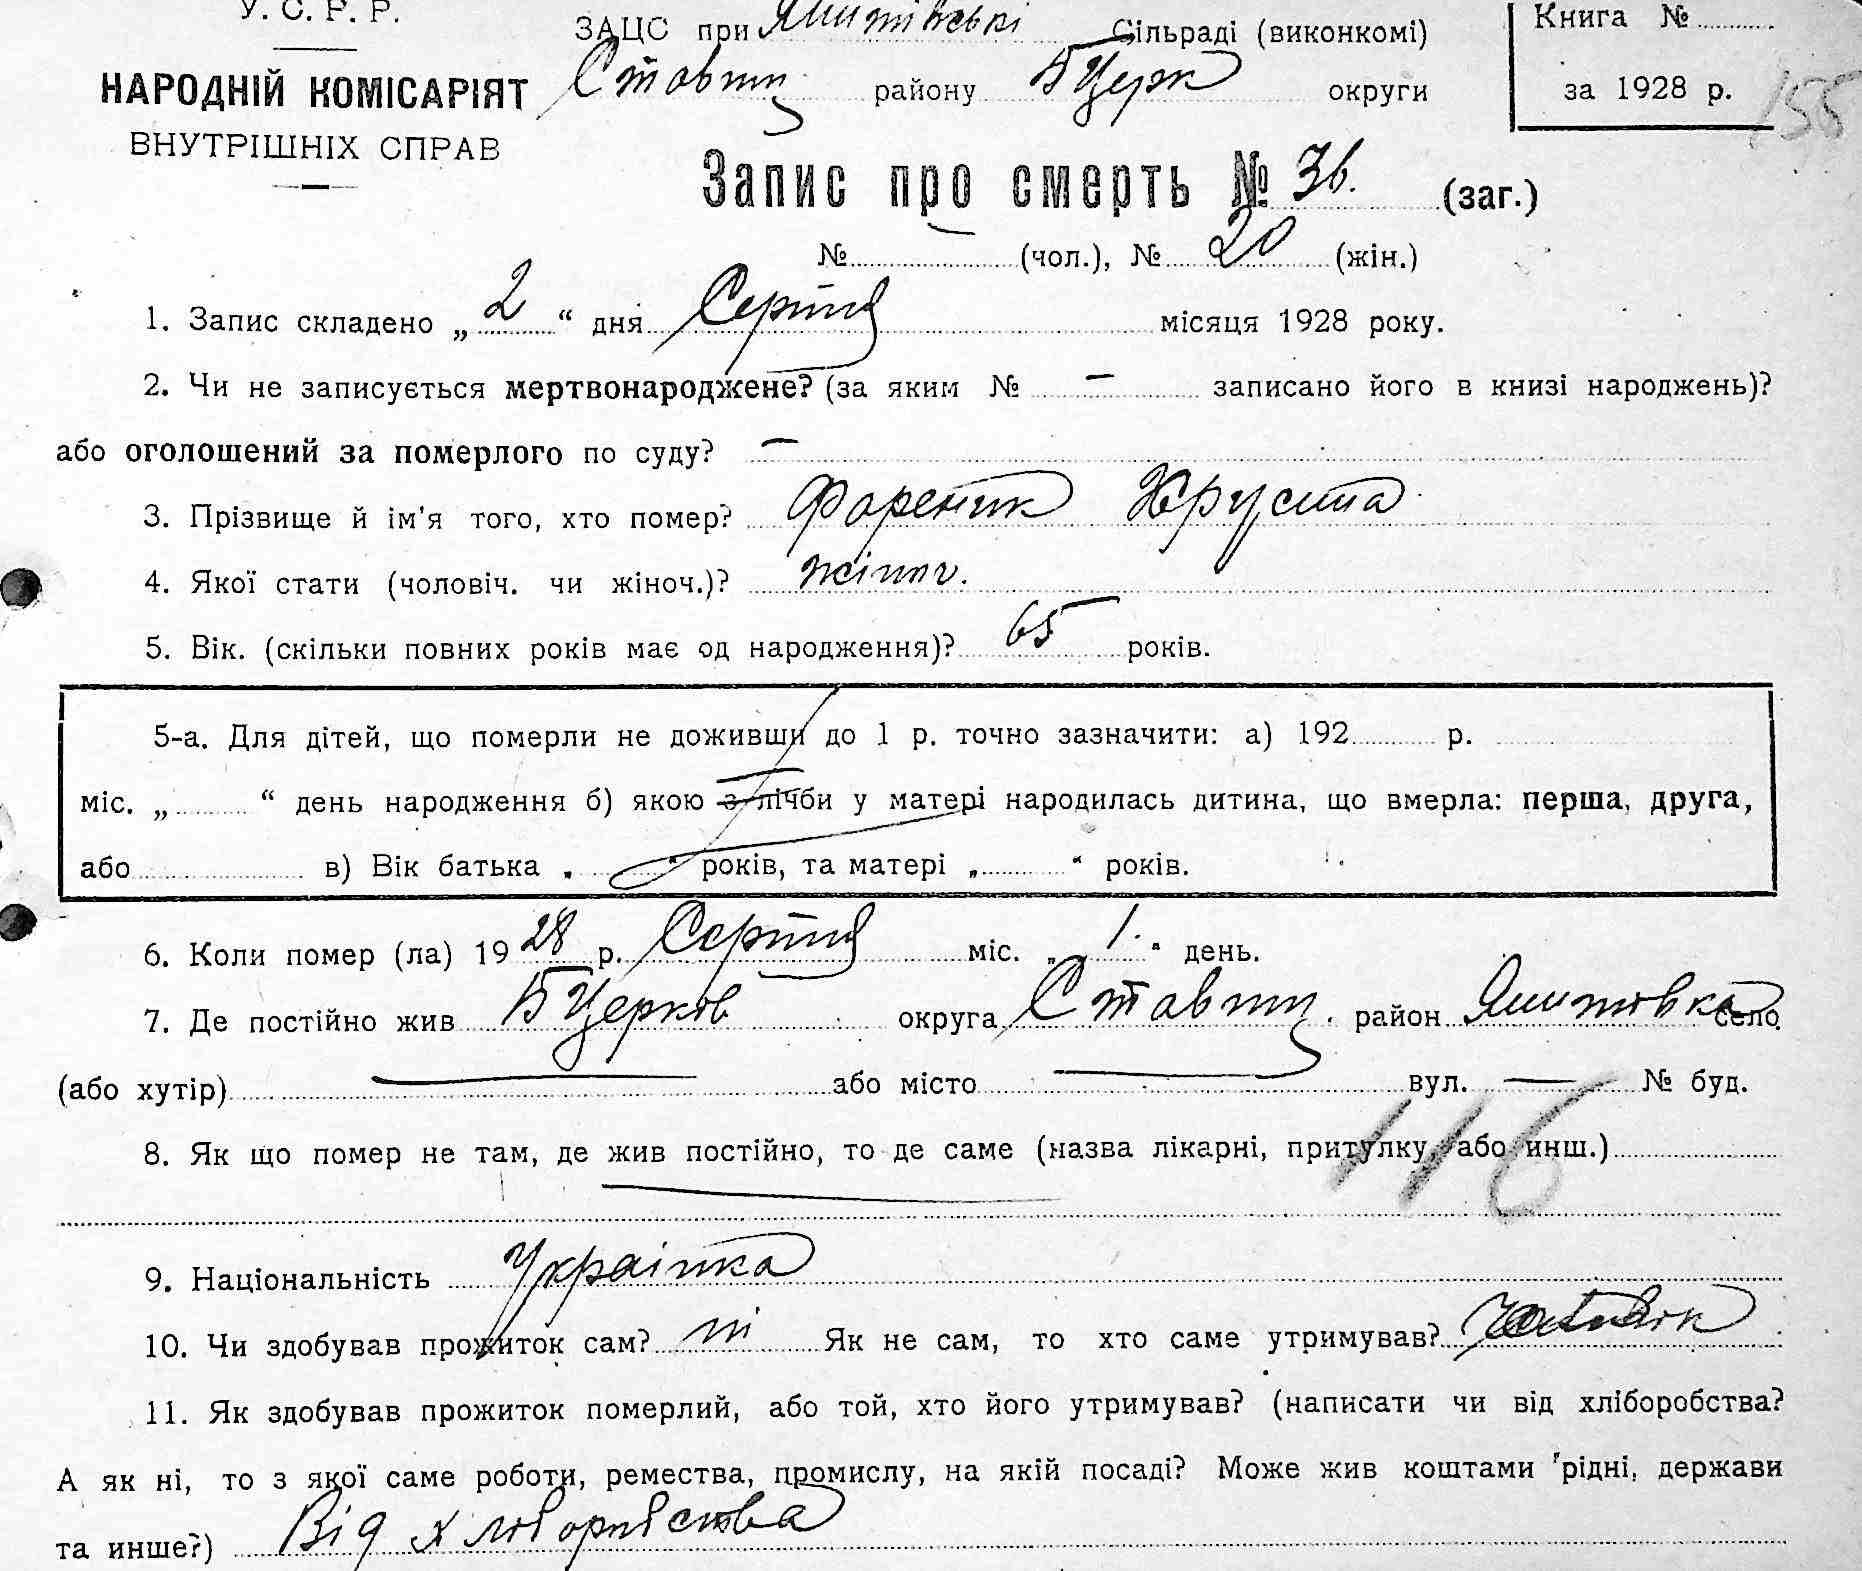 У. С. Р. Р.
НАРОДНІЙ КОМІСАРІЯТ
ВНУТРІШНІХ СПРАВ
ЗАЦС при Сільраді (виконкомі)
Ставищ району БЦерк округи
Книга №
за 1928 р. 155
Запис про смерть № 36. (заг.)
№ (чол.), № 20 (жін.)
1. Запис складено „ 2 “ дня Серпня місяця 1928 року.
2. Чи не записується мертвонароджене? (за яким № — записано його в книзі народжень)?
або оголошений за померлого по суду? —
3. Прізвище й ім'я того, хто помер? Фореник Хрусина
4. Якої стати (чоловіч. чи жіноч.)? жіноч.
5. Вік. (скільки повних років має од народження)? 65 років.
5-а. Для дітей, що померли не доживши до 1 р. точно зазначити: а) 192 р.
міс. „ “ день народження б) якою з лічби у матері народилась дитина, що вмерла: перша, друга,
або в) Вік батька „ “ років, та матері „ “ років.
6. Коли помер (ла) 1928 р. Серпня міс. „ 1. “ день.
7. Де постійно жив БЦерків округа Ставищ. район село
(або хутір) — або місто — вул. — № буд.
8. Як що помер не там, де жив постійно, то де саме (назва лікарні, притулку або инш.)
116
9. Національність Українка
10. Чи здобував прожиток сам? ні Як не сам, то хто саме утримував?
11. Як здобував прожиток померлий, або той, хто його утримував? (написати чи від хліборобства?
А як ні, то з якої саме роботи, ремества, промислу, на якій посаді? Може жив коштами рідні, держави
та инше?) Від